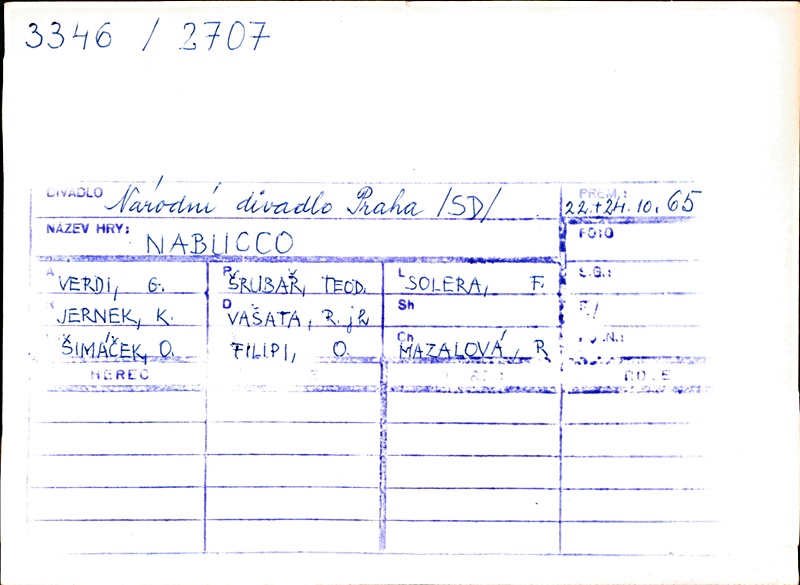 3346 / 2707
DIVADLO Národní divadlo Praha /SD/ PREM.: 22.+24.10.65
NÁZEV HRY: NABUCCO FOTO
A VERDI, G. R ŠRUBAŘ, TEOD. L SOLERA, F. S.G.:
JERNEK, K. D VAŠATA, R. j2 Sh F/
ŠIMÁČEK, O. FILIPI, O. Ch MAZALOVÁ, R
HEREC ROLE